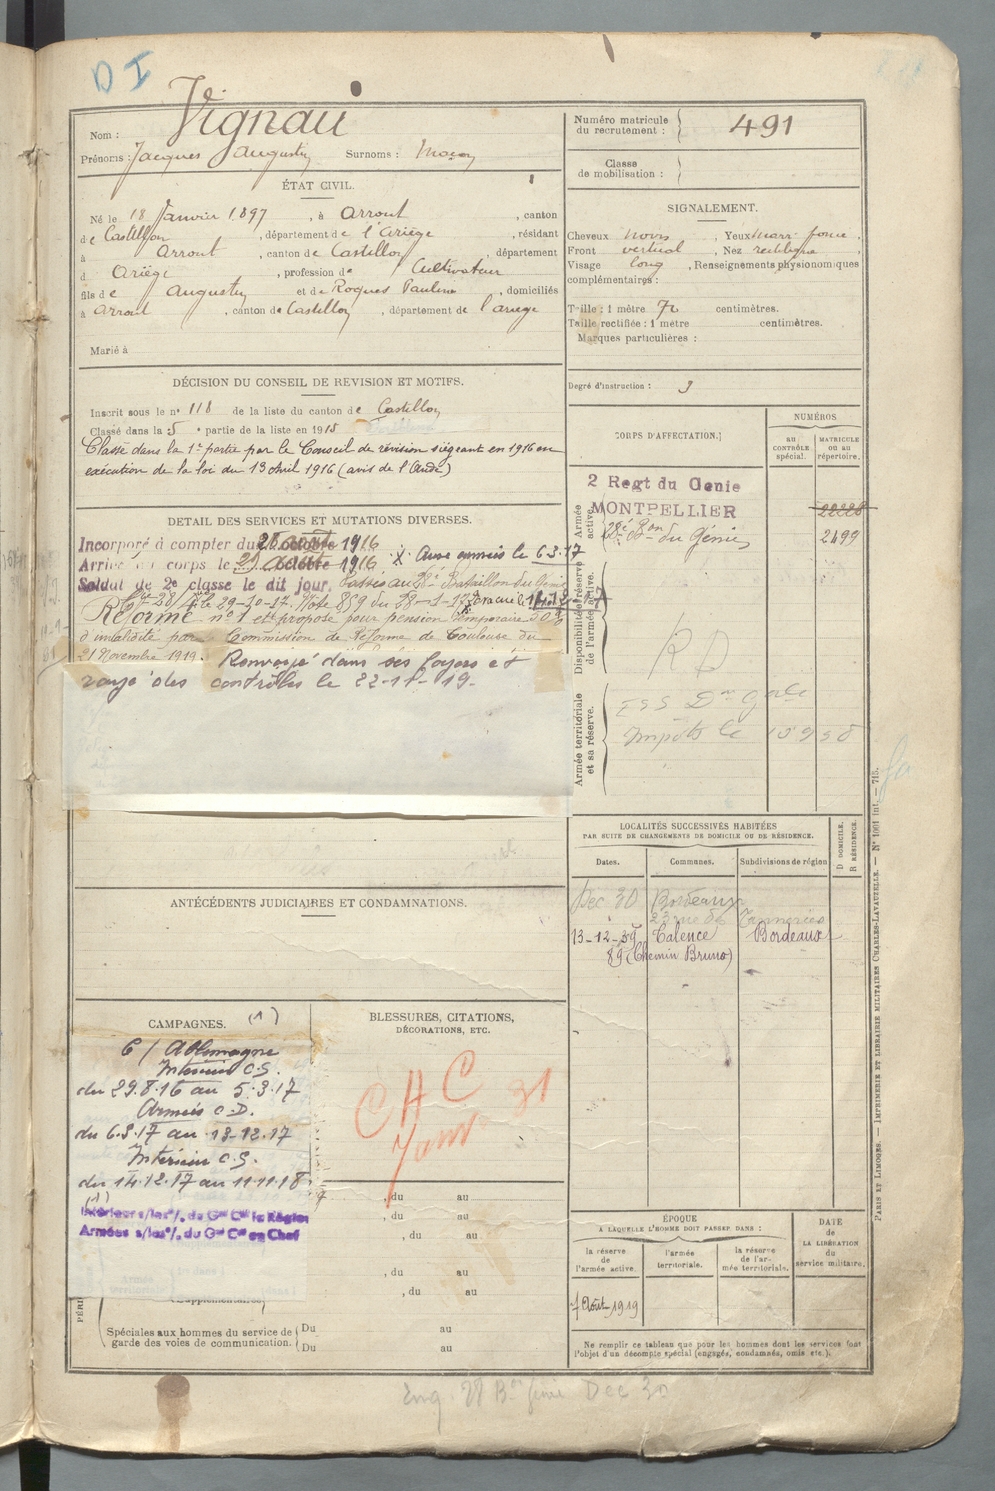 D I
Nom : Vignau
Prénoms : Jacques Augustin Surnoms :
Numéro matricule du recrutement : 491
Classe de mobilisation :
ÉTAT CIVIL.
Né le 18 Janvier 1897, à Arrout, canton
de Castillon, département de l'Ariège, résidant
à Arrout, canton de Castillon, département
d Ariège, profession de Cultivateur
fils de Augustin et de Roques Pauline, domiciliés
à Arrout, canton de Castillon, département de l'Ariège
Marié à
SIGNALEMENT.
Cheveux noirs, Yeux marr. foncé,
Front vertical, Nez rectiligne,
Visage long, Renseignements physionomiques
complémentaires :
Taille : 1 mètre 70 centimètres.
Taille rectifiée : 1 mètre centimètres.
Marques particulières :
Degré d'instruction : 3
DÉCISION DU CONSEIL DE REVISION ET MOTIFS.
Inscrit sous le n° 118 de la liste du canton de Castillon
Classé dans la 5e partie de la liste en 1915
Classé dans la 1e partie par le Conseil de révision siégeant en 1916 en
exécution de la loi du 13 Avril 1916 (avis de l'Aude)
DETAIL DES SERVICES ET MUTATIONS DIVERSES.
Incorporé à compter du 1916
Arrivé au corps le 1916 X Aux armées le 6-3-17
Soldat de 2e classe le dit jour. Passé au 28e Bataillon du Génie
le 29-10-17. Note 859 du
Réformé n° 1 et proposé pour pension temporaire 30%
d'invalidité par Commission de Réforme de Toulouse du
21 Novembre 1919. Renvoyé dans ses foyers et
rayé des contrôles le 22-11-19.
CORPS D'AFFECTATION.
NUMÉROS
AU CONTRÔLE spécial.
MATRICULE ou au répertoire.
Armée active.
2 Regt du Genie
MONTPELLIER 22228
28e Bon du Génie 2499
Disponibilité et réserve de l'armée active.
R D
Armée territoriale et sa réserve.
Impôts le
LOCALITÉS SUCCESSIVES HABITÉES
PAR SUITE DE CHANGEMENTS DE DOMICILE OU DE RÉSIDENCE.
Dates. Communes. Subdivisions de région.
D DOMICILE.
R RÉSIDENCE.
Dec 30 Bordeaux
23 rue des Tanneries
13-12-39 Talence Bordeaux
89 (Chemin Bruno)
ANTÉCÉDENTS JUDICIAIRES ET CONDAMNATIONS.
CAMPAGNES. (1)
C / Allemagne
Intérieur C.S.
du 29.8.16 au 5.3.17
Armées C.D.
du 6.3.17 au 13-12-17
Intérieur C.S.
du 14.12.17 au 11.11.18
(1)
Intérieur s/les o/. du Gal Ct la Région
Armées s/les o/. du Gal Ct en Chef
BLESSURES, CITATIONS,
DÉCORATIONS, ETC.
CHC
Janv 31
, du au
, du au
, du au
, du au
, du au
Spéciales aux hommes du service de
garde des voies de communication.
Du au
Du au
ÉPOQUE
A LAQUELLE L'HOMME DOIT PASSER DANS :
la réserve de l'armée active.
l'armée territoriale.
la réserve de l'armée territoriale.
DATE de LA LIBÉRATION du service militaire.
Août 1919
Ne remplir ce tableau que pour les hommes dont les services font
l'objet d'un décompte spécial (engagés, condamnés, omis etc.).
PARIS ET LIMOGES. — IMPRIMERIE ET LIBRAIRIE MILITAIRES CHARLES-LAVAUZELLE. — N° 1001 int. — 715.
Eng. 28 Bon Génie Dec 30